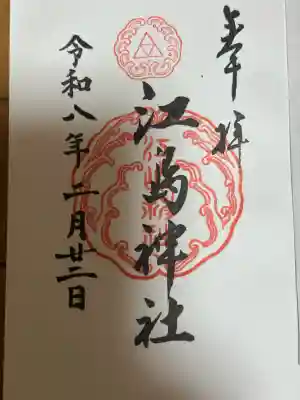 奉拝
江島神社
令和八年二月廿二日